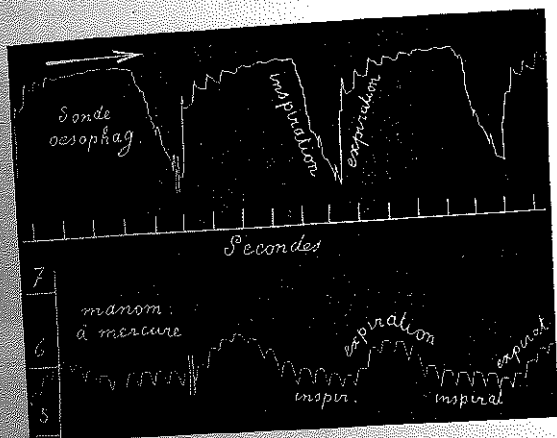 Sonde
oesophag.
inspiration
expiration
Secondes
7
manom.
à mercure
6
expiration
expirat
inspir.
inspirat
5